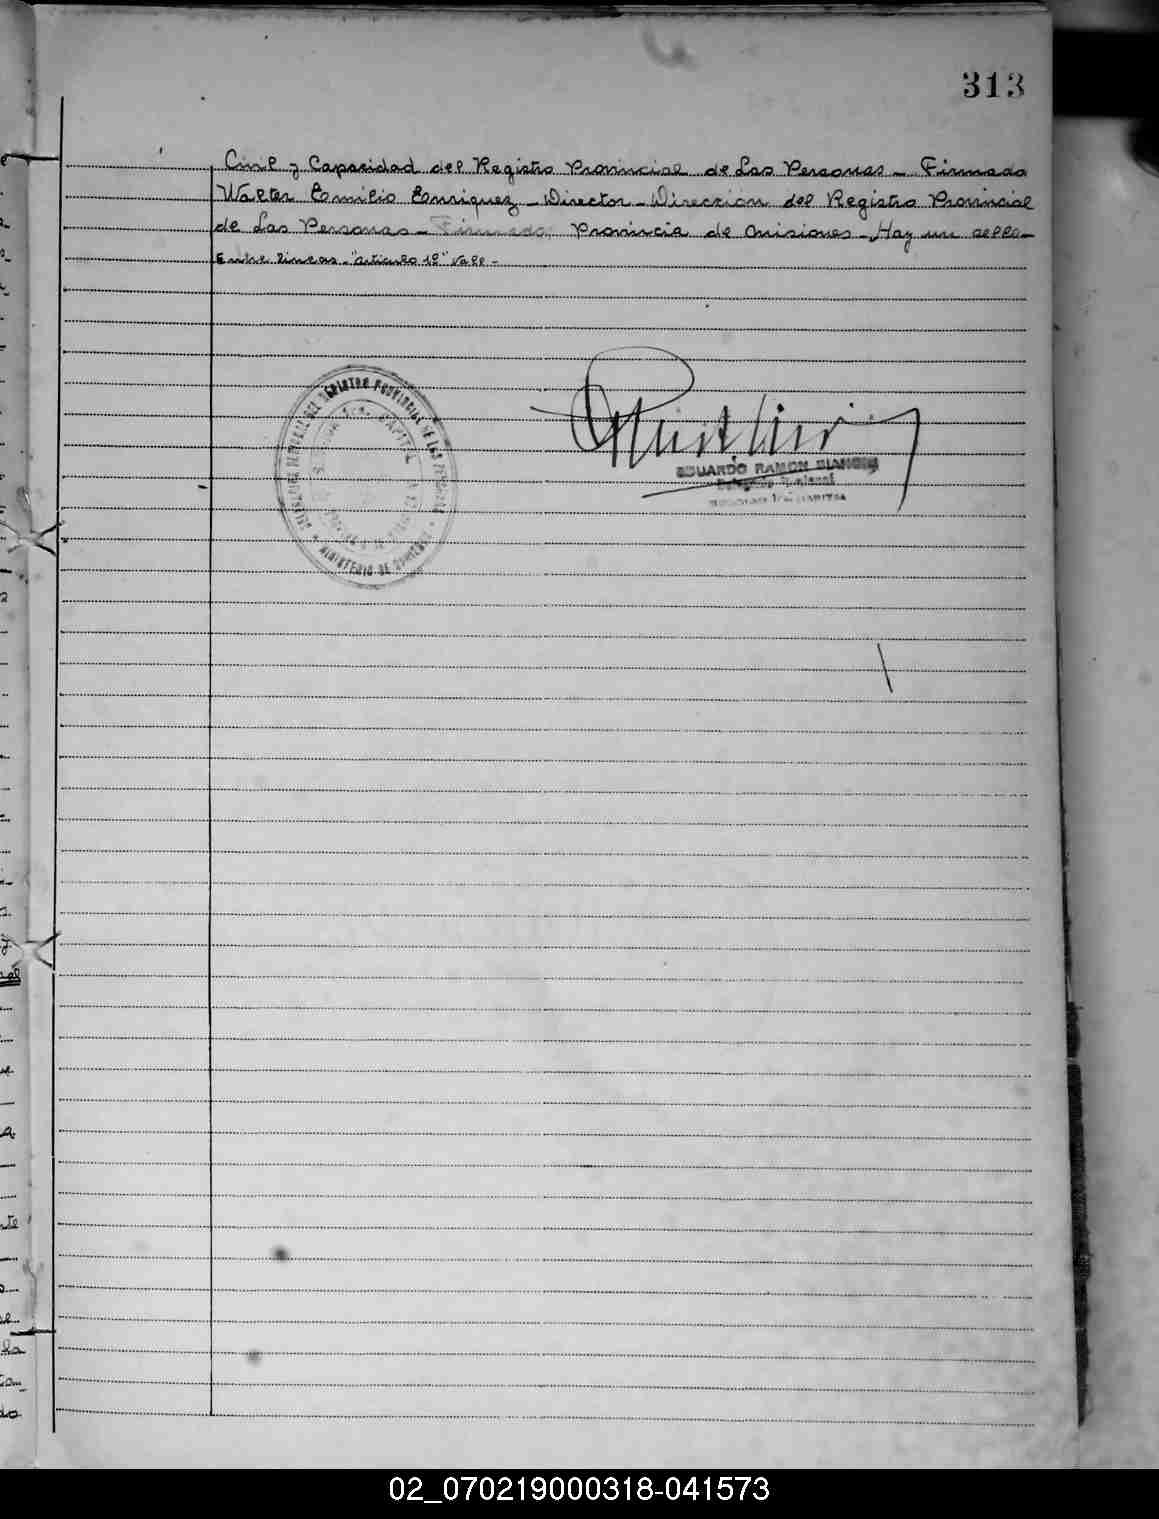 313
Civil y Capacidad del Registro Provincial de Las Personas - Firmado
Walter Emilio Enriquez - Director - Dirección del Registro Provincial
de Las Personas - Firmado, Provincia de Misiones - Hay un sello -
Entre lineas - "artículo 1º" Vale -
REGISTRO PROVINCIAL DE LAS PERSONAS
CAPITAL
MINISTERIO DE GOBIERNO
EDUARDO RAMON BIANCHI
02_070219000318-041573